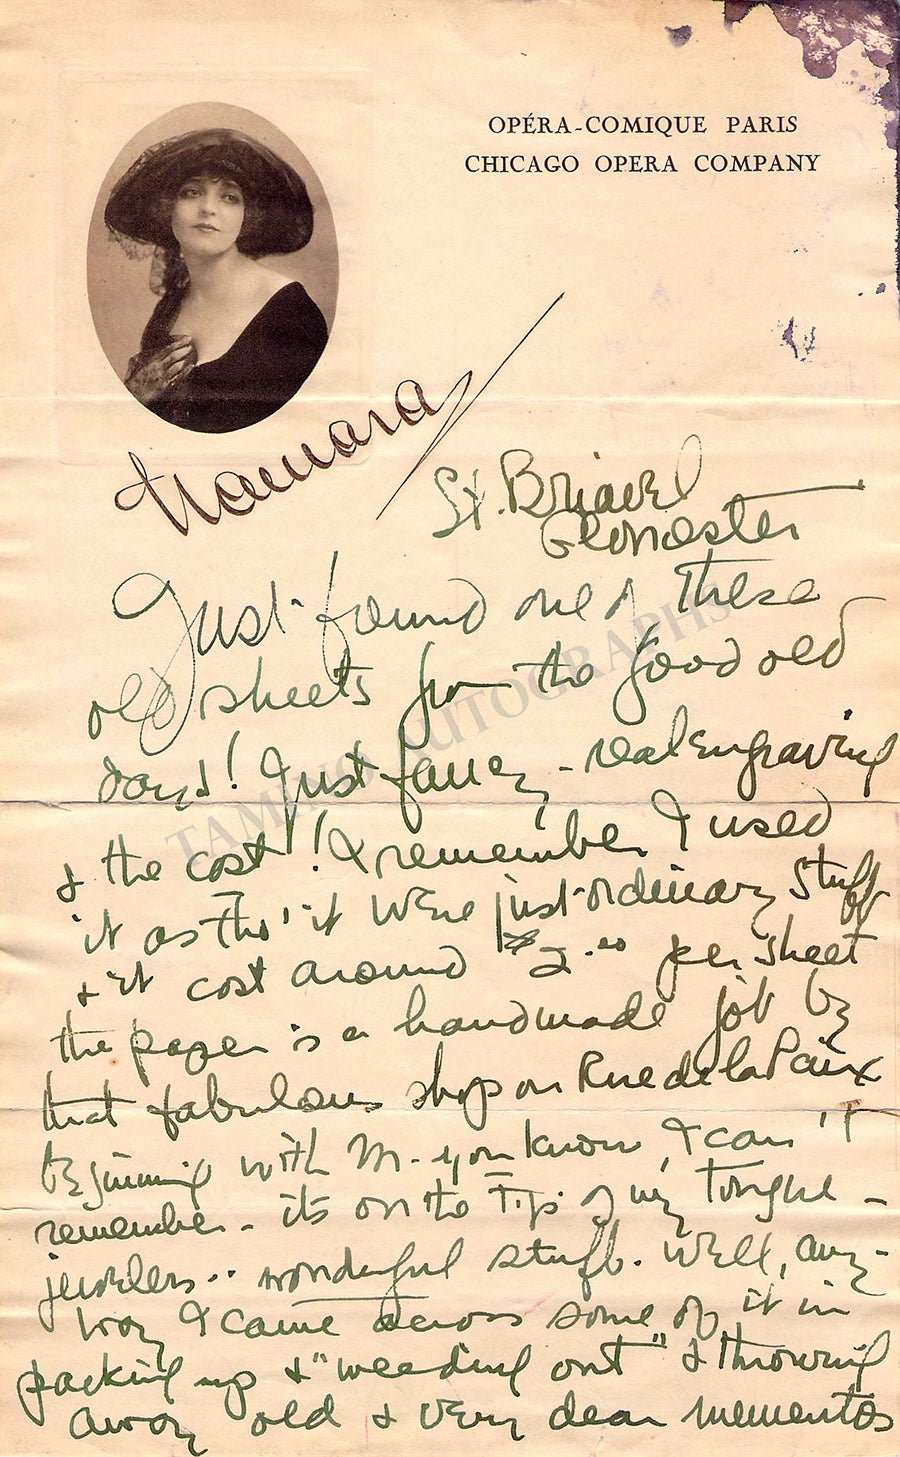 OPÉRA-COMIQUE PARIS
CHICAGO OPERA COMPANY
Namara
St. Briavel
Gloucester
Just found one of these
old sheets from the good old
days! Just fancy - real engraving
& the cost! I remember I used
it as tho' it were just ordinary stuff
& it cost around $2.00 per sheet
the paper is a handmade job by
that fabulous shop on Rue de la Paix
beginning with M - you know, I can't
remember - its on the tip of my tongue -
jewelers.. wonderful stuff. Well, any-
way I came across some of it in
packing up & "weeding out" & throwing
away old & very dear mementos
TAMINO AUTOGRAPHS